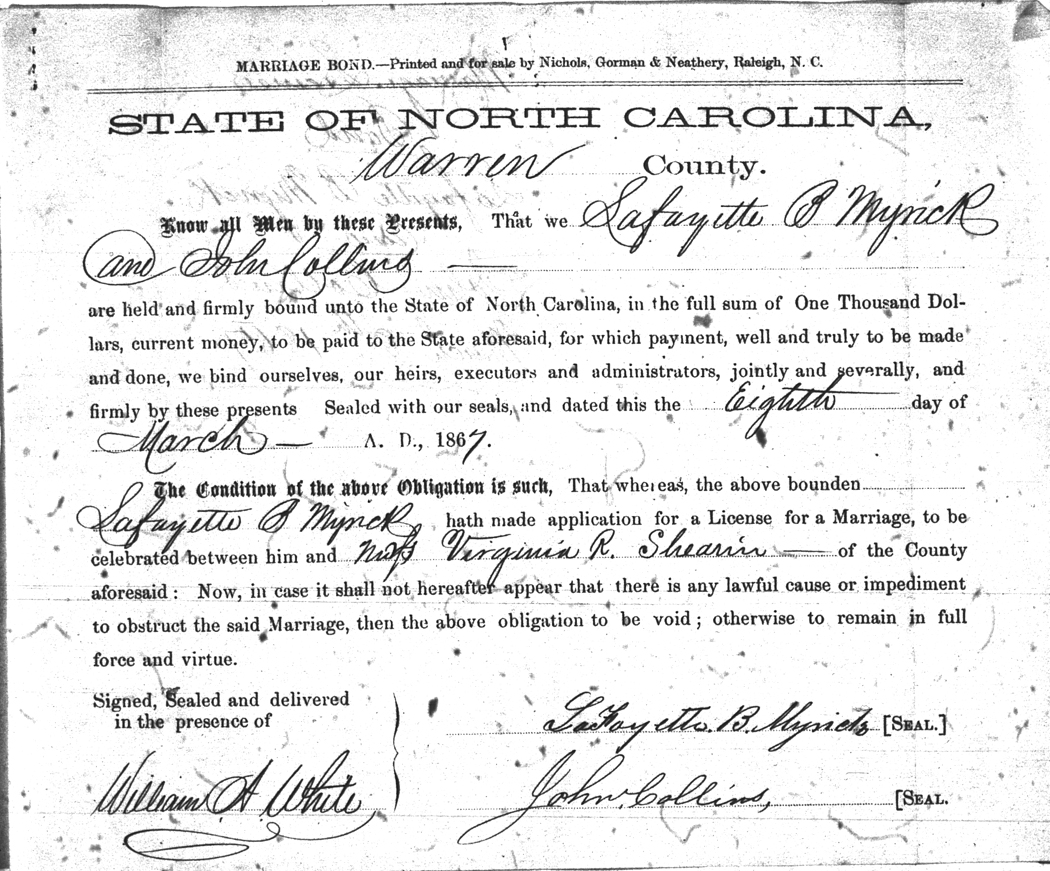 MARRIAGE BOND.—Printed and for sale by Nichols, Gorman & Neathery, Raleigh, N. C.
STATE OF NORTH CAROLINA,
Warren County.
Know all Men by these Presents, That we Lafayette B Myrick
and John Collins
are held and firmly bound unto the State of North Carolina, in the full sum of One Thousand Dol-
lars, current money, to be paid to the State aforesaid, for which payment, well and truly to be made
and done, we bind ourselves, our heirs, executors and administrators, jointly and severally, and
firmly by these presents Sealed with our seals, and dated this the Eighth day of
March — A. D., 1867.
The Condition of the above Obligation is such, That whereas, the above bounden
Lafayette B Myrick hath made application for a License for a Marriage, to be
celebrated between him and Miss Virginia R. Shearin — of the County
aforesaid: Now, in case it shall not hereafter appear that there is any lawful cause or impediment
to obstruct the said Marriage, then the above obligation to be void; otherwise to remain in full
force and virtue.
Signed, Sealed and delivered
in the presence of
LaFayette. B. Myrick [SEAL.]
William A. White
John Collins, [SEAL.